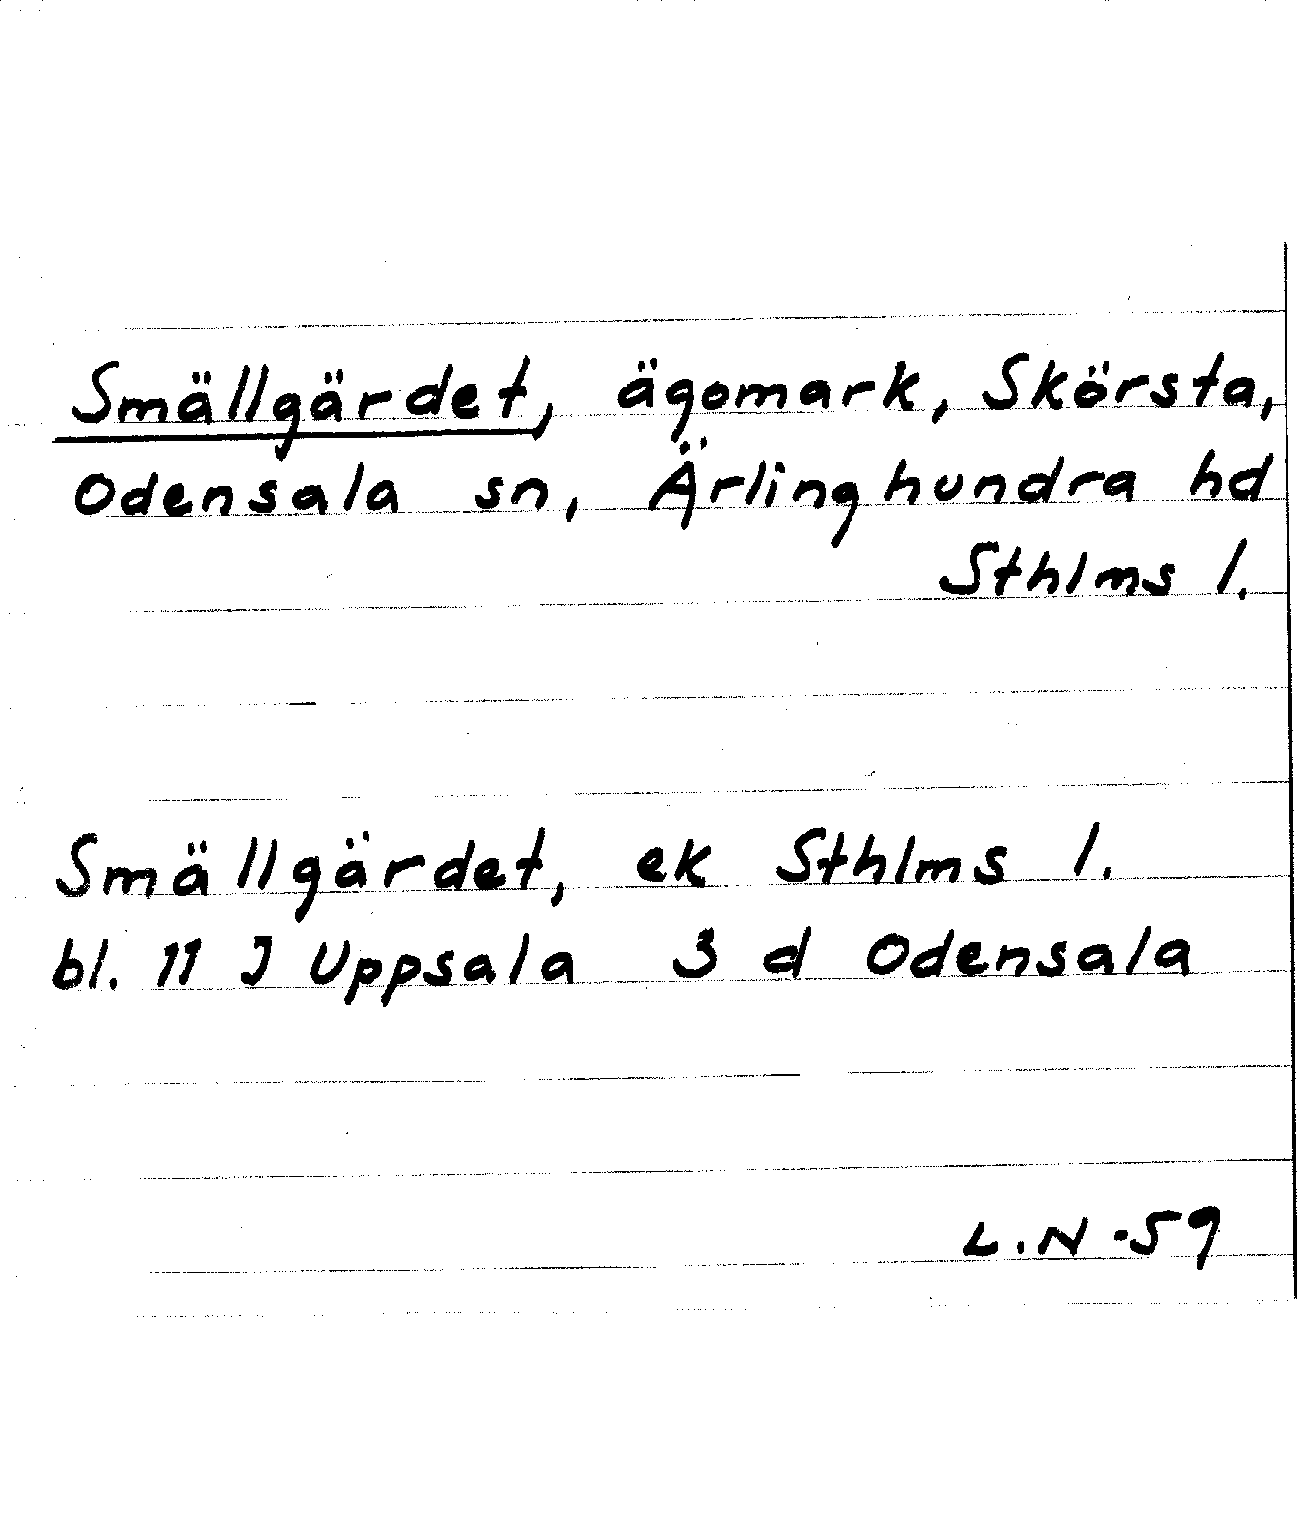 Smällgärdet, ägomark, Skörsta,
Odensala sn, Ärlinghundra hd
Sthlms l.
Smällgärdet, ek Sthlms l.
bl. 11 J Uppsala 3 d Odensala
L.N -59